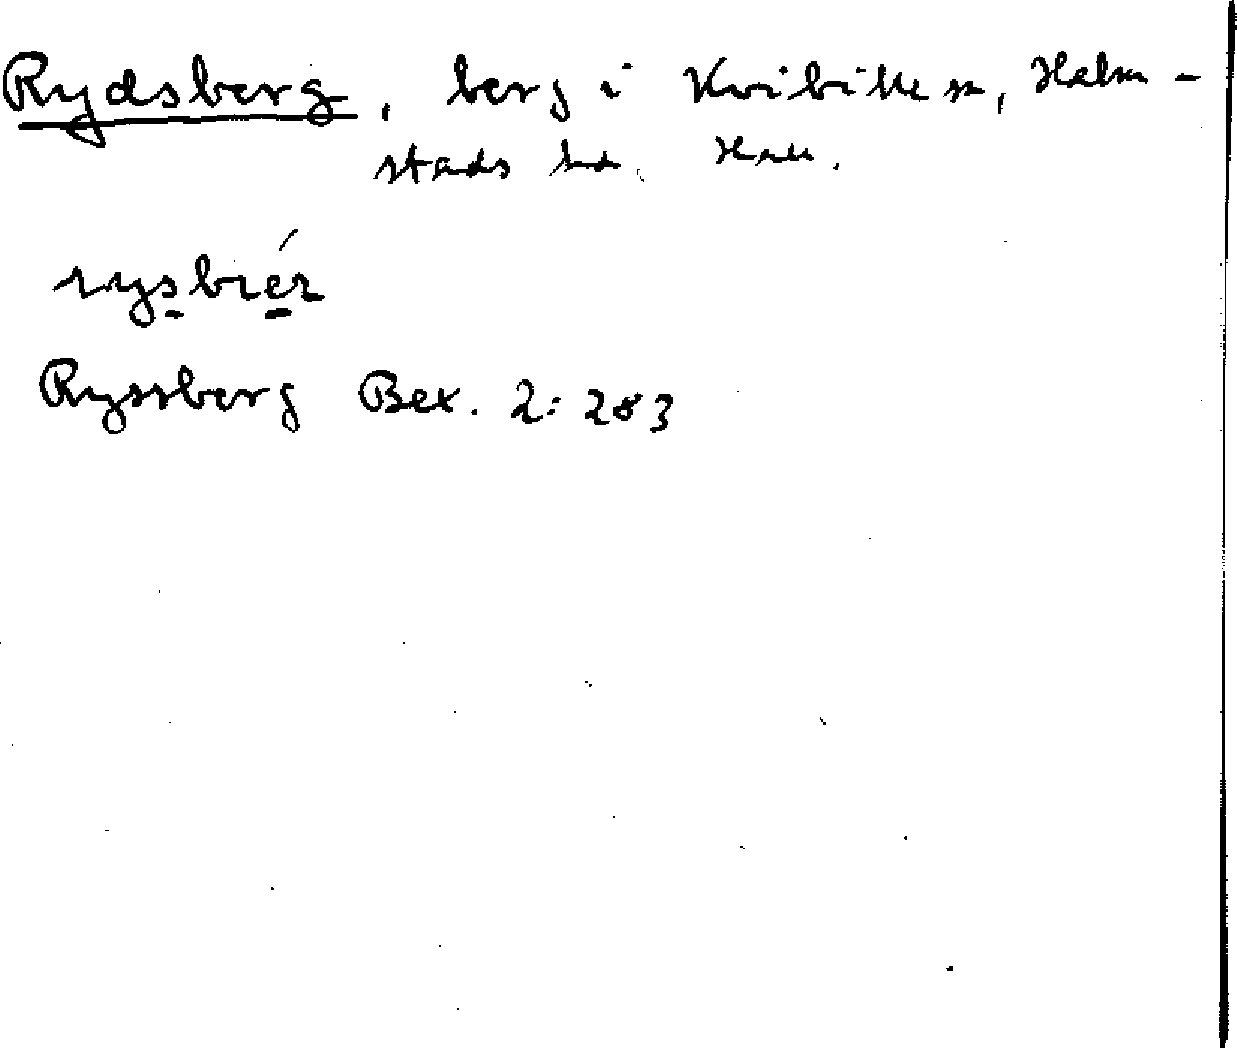 Rydsberg, berg i Kvibille sn, Halm-
stads hd. Hall.
rysbiér
Ryssberg Bex. 2: 283